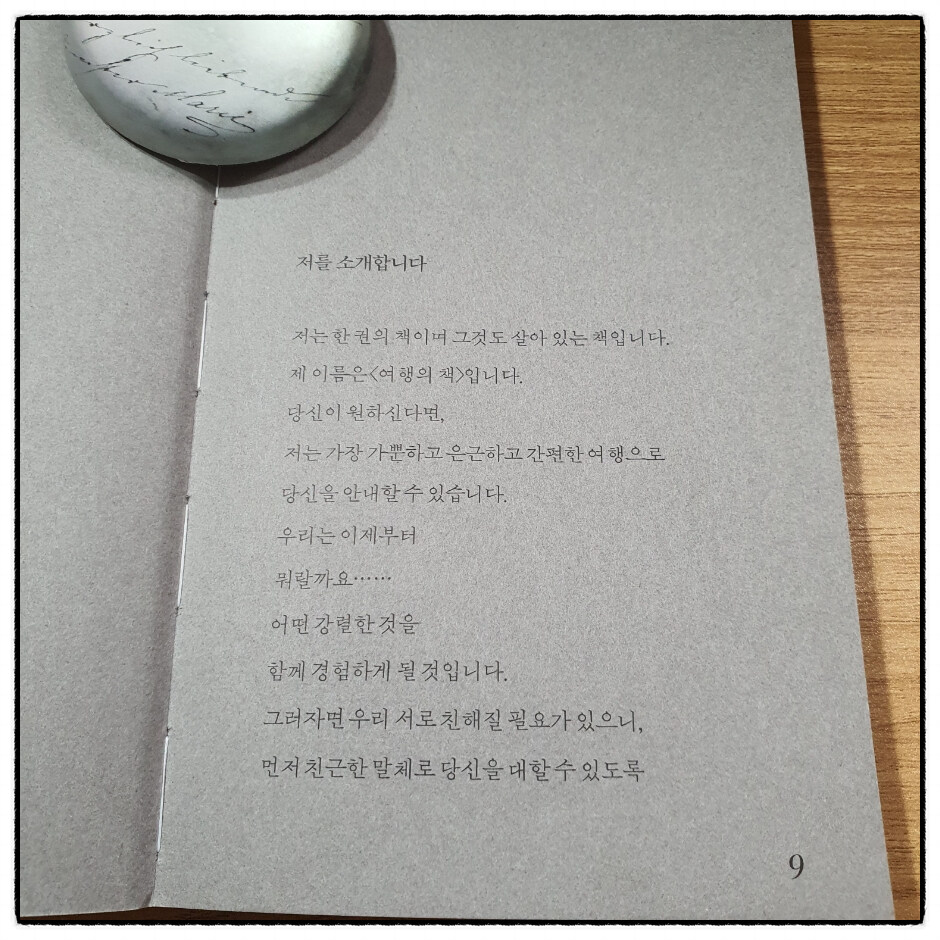 저를 소개합니다
저는 한 권의 책이며 그것도 살아 있는 책입니다.
제 이름은 <여행의 책>입니다.
당신이 원하신다면,
저는 가장 가뿐하고 은근하고 간편한 여행으로
당신을 안내할 수 있습니다.
우리는 이제부터
뭐랄까요……
어떤 강렬한 것을
함께 경험하게 될 것입니다.
그러자면 우리 서로 친해질 필요가 있으니,
먼저 친근한 말체로 당신을 대할 수 있도록
9